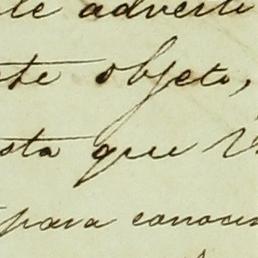 te adverti
ste objeto,
sta que V
para conocer